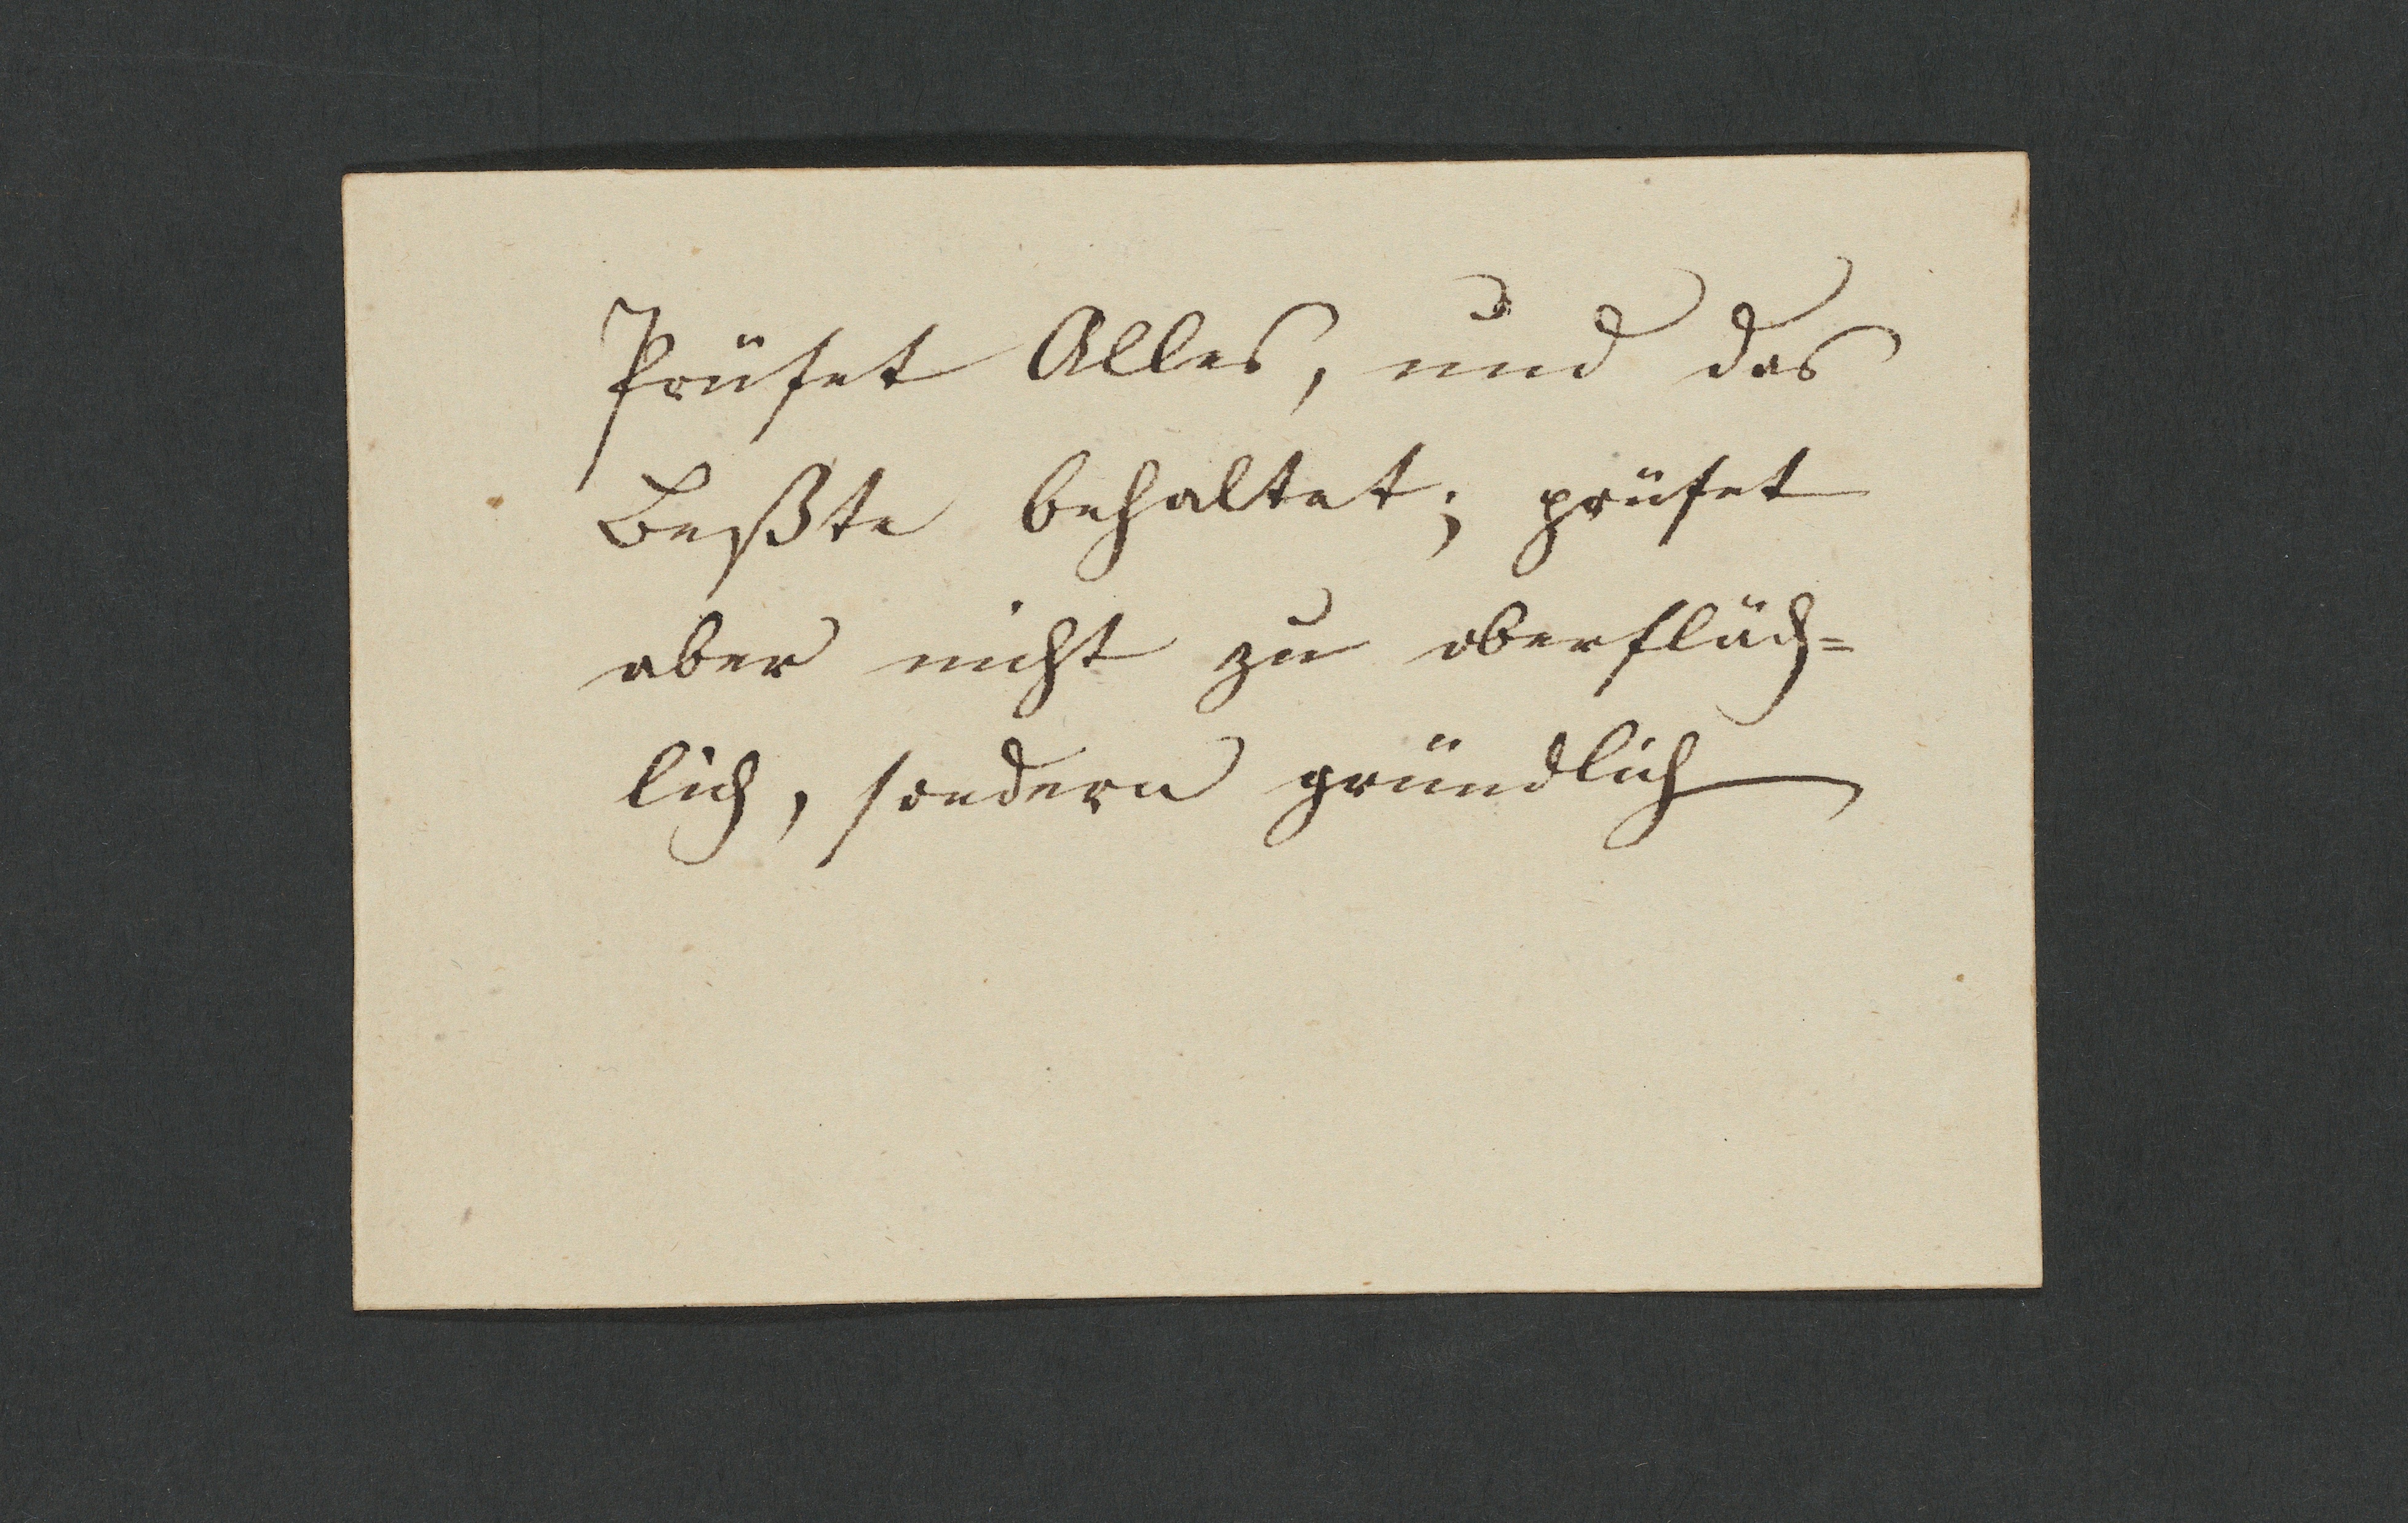 Prüfet Alles, und das
Beßte behaltet; prüfet
aber nicht zu oberfläch=
lich, sondern gründlich